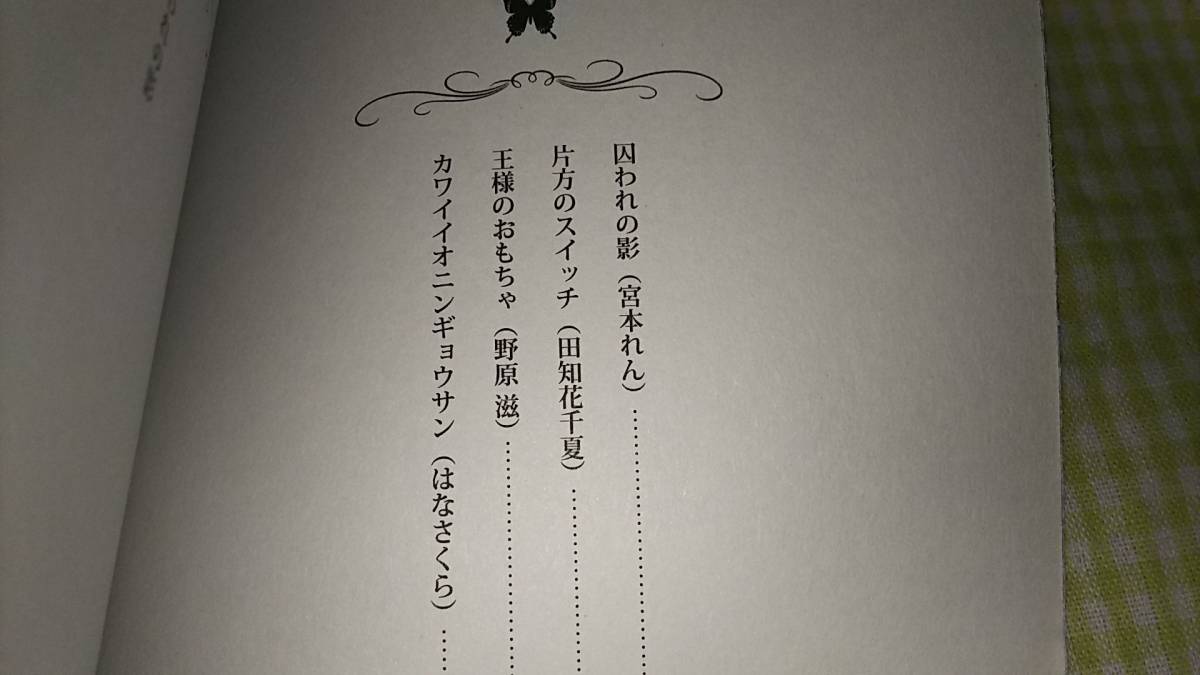 囚われの影（宮本れん）……………………
片方のスイッチ（田知花千夏）………………
王様のおもちゃ（野原 滋）……………………
カワイイオニンギョウサン（はなさくら）……